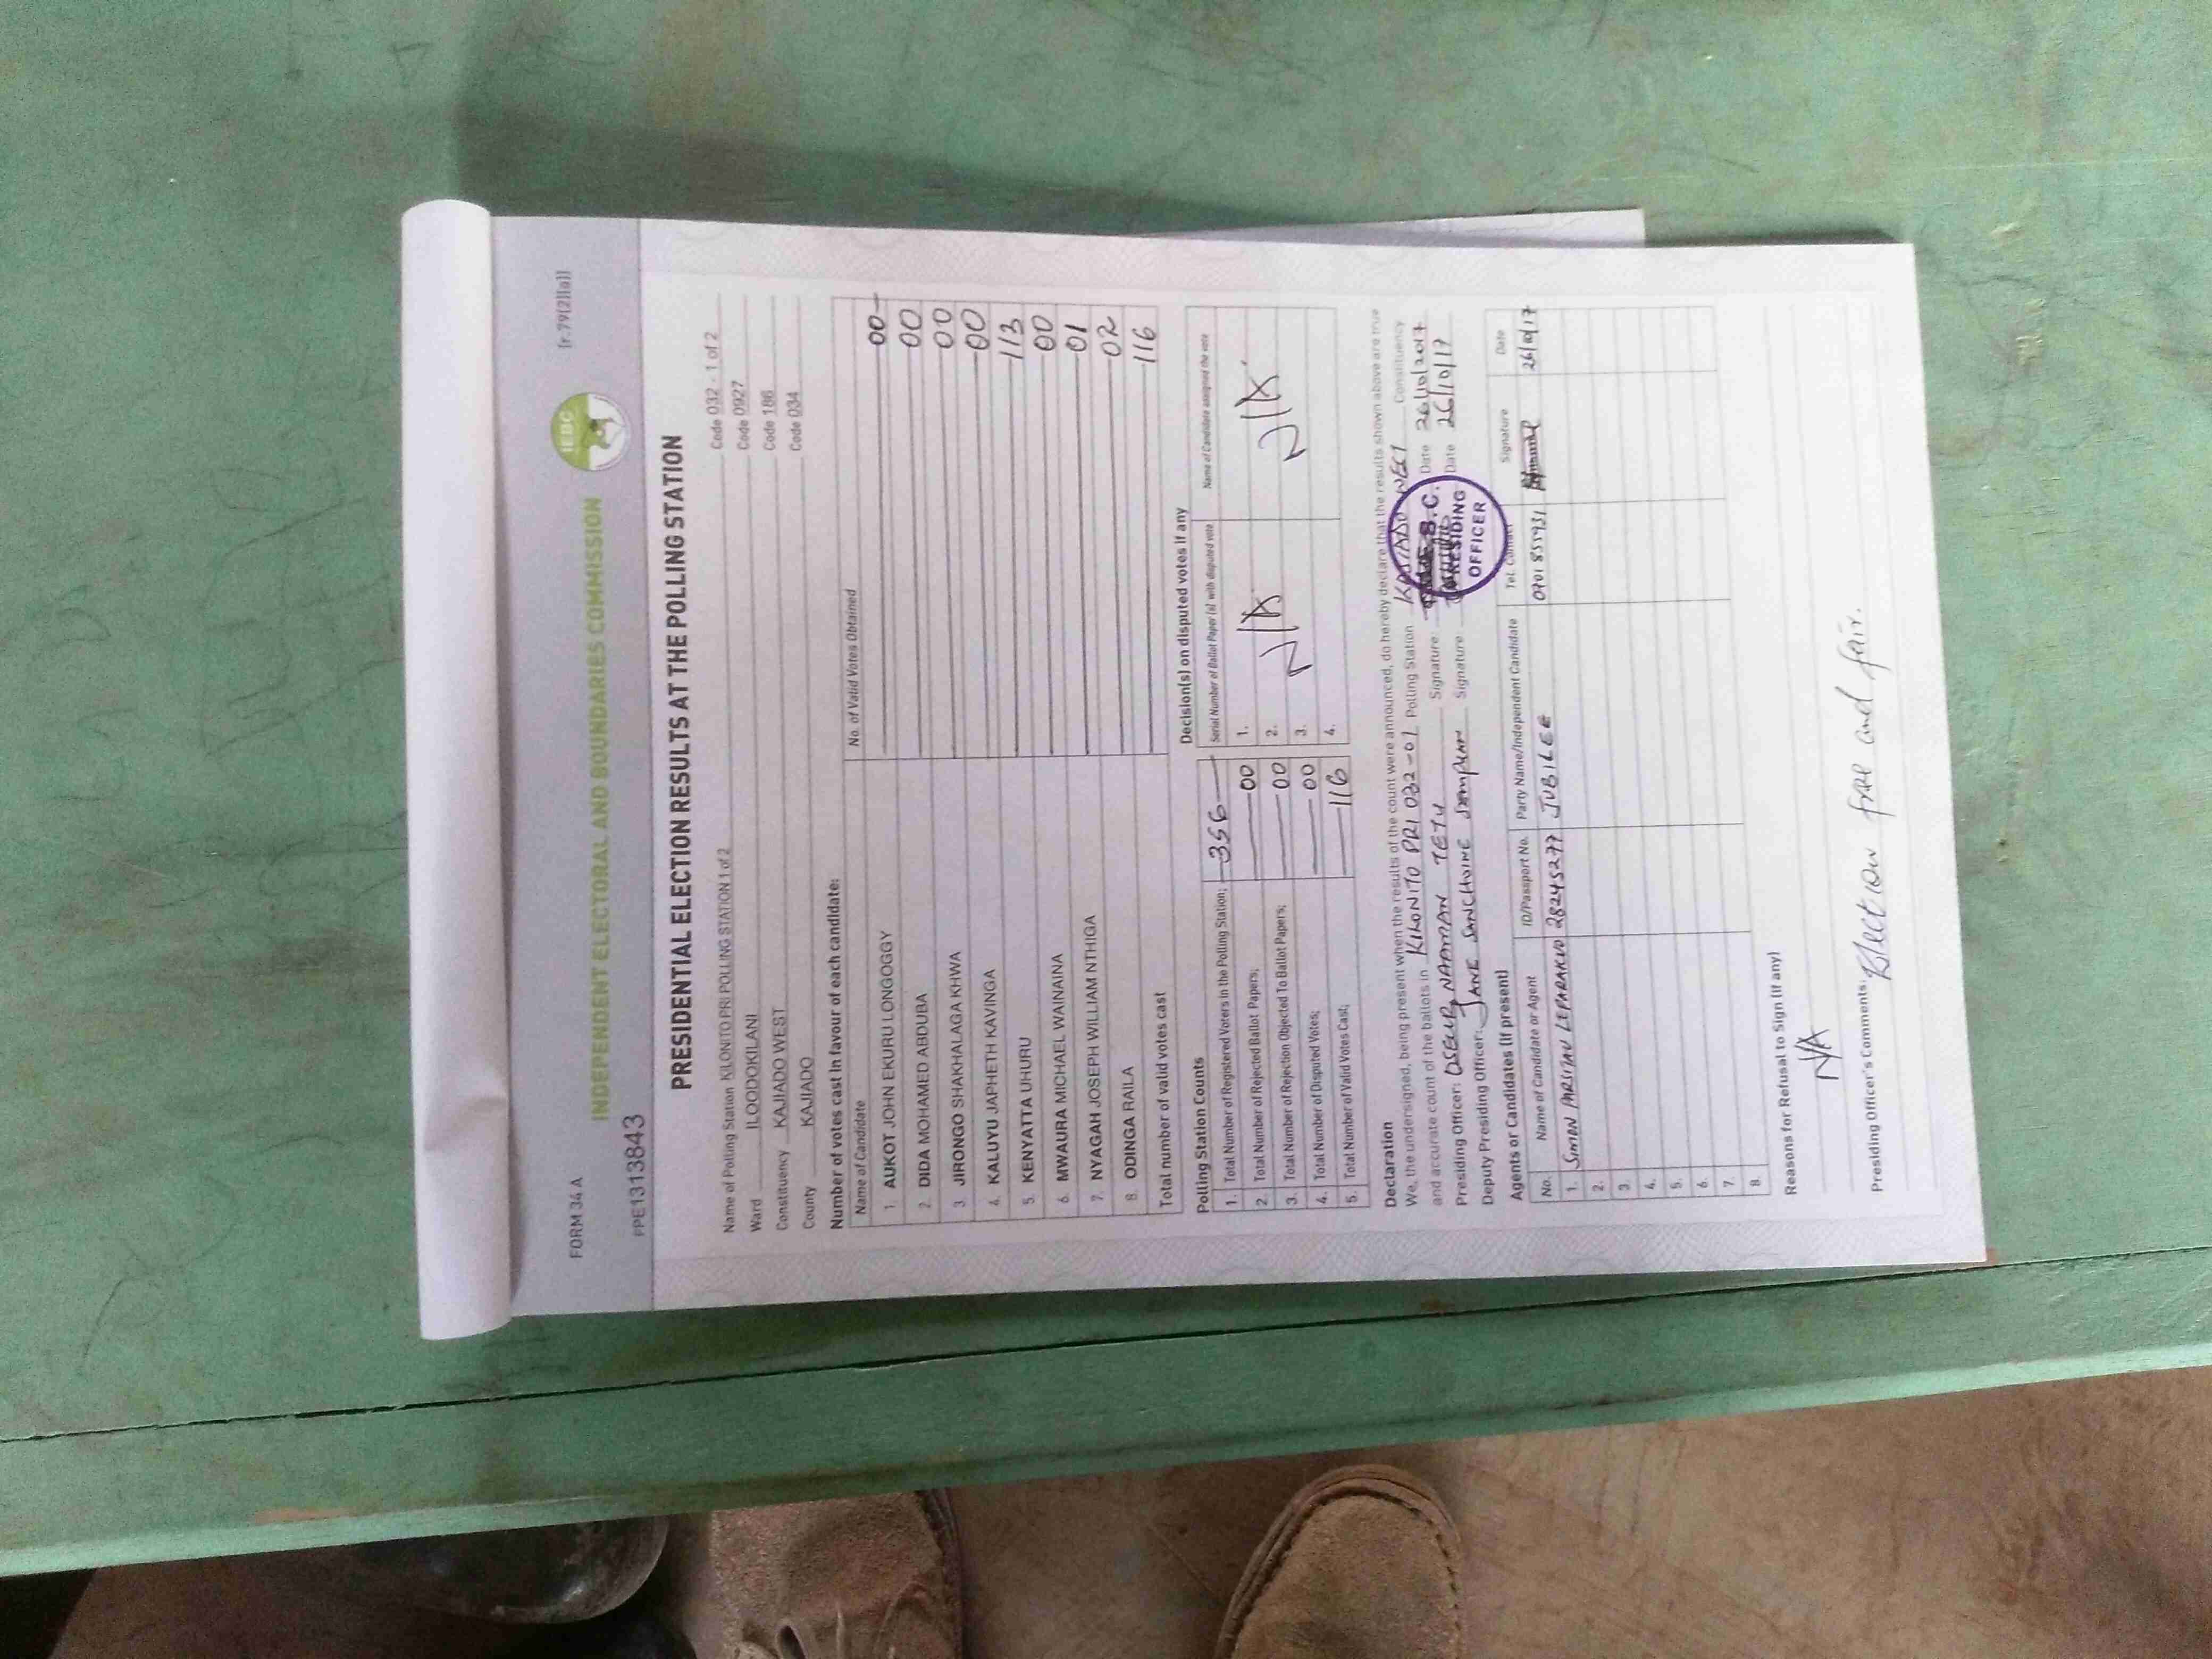 FORM 34 A
[r.79(2)(a)]
INDEPENDENT ELECTORAL AND BOUNDARIES COMMISSION
IEBC
PPE1313843
PRESIDENTIAL ELECTION RESULTS AT THE POLLING STATION
Name of Polling Station KILONITO PRI POLLING STATION 1 of 2 Code 032 - 1 of 2
Ward ILOODOKILANI Code 0927
Constituency KAJIADO WEST Code 186
County KAJIADO Code 034
Number of votes cast in favour of each candidate:
Name of Candidate No. of Valid Votes Obtained
1. AUKOT JOHN EKURU LONGOGGY 00
2. DIDA MOHAMED ABDUBA 00
3 JIRONGO SHAKHALAGA KHWA 00
4. KALUYU JAPHETH KAVINGA 00
5. KENYATTA UHURU 113
6. MWAURA MICHAEL WAINAINA 00
7. NYAGAH JOSEPH WILLIAM NTHIGA 01
8. ODINGA RAILA 02
Total number of valid votes cast 116
Polling Station Counts
1. Total Number of Registered Voters in the Polling Station; 356
2. Total Number of Rejected Ballot Papers; 00
3. Total Number of Rejection Objected To Ballot Papers; 00
4. Total Number of Disputed Votes; 00
5. Total Number of Valid Votes Cast; 116
Decision(s) on disputed votes if any
Serial Number of Ballot Paper (s) with disputed vote Name of Candidate assigned the vote
1. N/A N/A
2. N/A N/A
3.
4.
Declaration
We, the undersigned, being present when the results of the count were announced, do hereby declare that the results shown above are true
and accurate count of the ballots in KILONITO PRI 032-01 Polling Station KAJIADO WEST Constituency
Presiding Officer: NAAMAN TETU Signature: Date 26/10/2017
Deputy Presiding Officer: JANE Signature: Date 26/10/17
PRESIDING
OFFICER
Agents or Candidates (if present)
No. Name of Candidate or Agent ID/Passport No. Party Name/Independent Candidate Tel. Contact Signature Date
1. SIMON 28245277 JUBILEE 26/10/17
2.
3.
4.
5.
6.
7.
8.
Reasons for Refusal to Sign (if any)
N/A
Presiding Officer's Comments: Election free and fair.